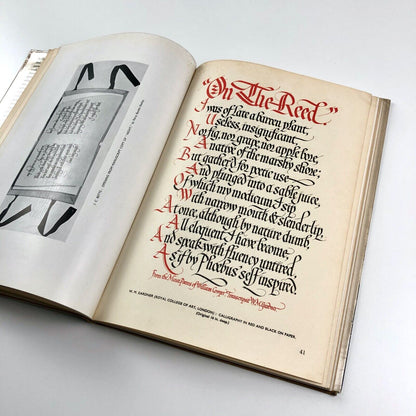 "On The Reed"
I was of late a barren plant,
Useless, insignificant,
Nor fig, nor grape, nor apple bore,
A native of the marshy shore;
But gather'd for poetic use
And plunged into a sable juice,
Of which my modicum I sip
With narrow mouth & slender lip,
At once, although by nature dumb,
All eloquent I have become,
And speak with fluency untired,
As if by Phoebus' self inspired
from the Minor Poems of William Cowper.
W. M. GARDNER (ROYAL COLLEGE OF ART, LONDON) : CALLIGRAPHY IN RED AND BLACK ON PAPER.
(Original 16 in. deep.)
41